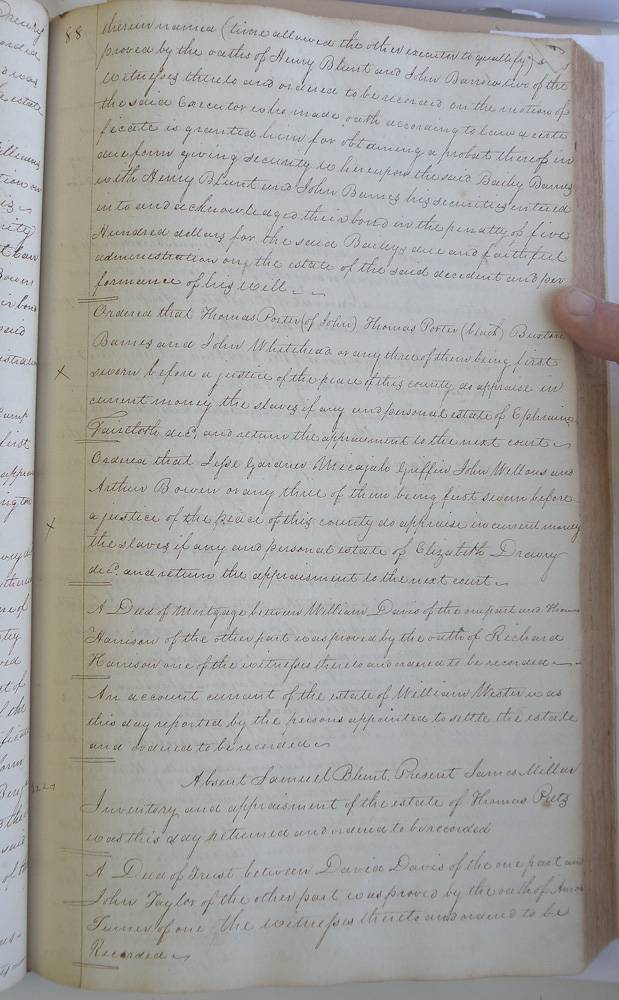 88
therein named (time allowed the other executor to quallify) &
proved by the oaths of Henry Blunt and John Barrow two of the
witnesses thereto and ordered to be recorded on the motion of
the said Executor who made oath according to law a certi
ficate is granted him for obtaining a probat thereof in
due form giving security whereupon the said Bailey Barnes
with Henry Blunt and John Barnes his securities entered
into and acknowledged their bond in the penalty of five
Hundred dollars for the said Baileys due and faithful
administration on the estate of the said decedent and per
formance of his will
Ordered that Thomas Porter (of John) Thomas Porter (black) Buxton
Barnes and John Whitehead or any three of them being first
sworn before a justice of the peace of this county do appraise in
current money the slaves if any and personal estate of Ephraim
Faircloth decd. and return the appraisment to the next court
Ordered that Jesse Gardner Micajah Griffin John Wellons and
Arthur Bowen or any three of them being first sworn before
a justice of the peace of this county do appraise in current money
the slaves if any and personal estate of Elizabeth Drewry
decd. and return the appraisment to the next court
A Deed of Mortgage between William Davis of the one part and Thomas
Harrison of the other part was proved by the oath of Richard
Harrison one of the witnesses thereto and ordered to be recorded
An account currant of the estate of William Wester was
this day reported by the persons appointed to settle the estate
and ordered to be recorded
Absent Samuel Blunt Present James Millar
Inventory and appraisment of the estate of Thomas
was this day returned and ordered to be recorded
A Deed of Trust between David Davis of the one part and
John Taylor of the other part was proved by the oath of Amos
Turner of one the witnesses thereto and ordered to be
Recorded